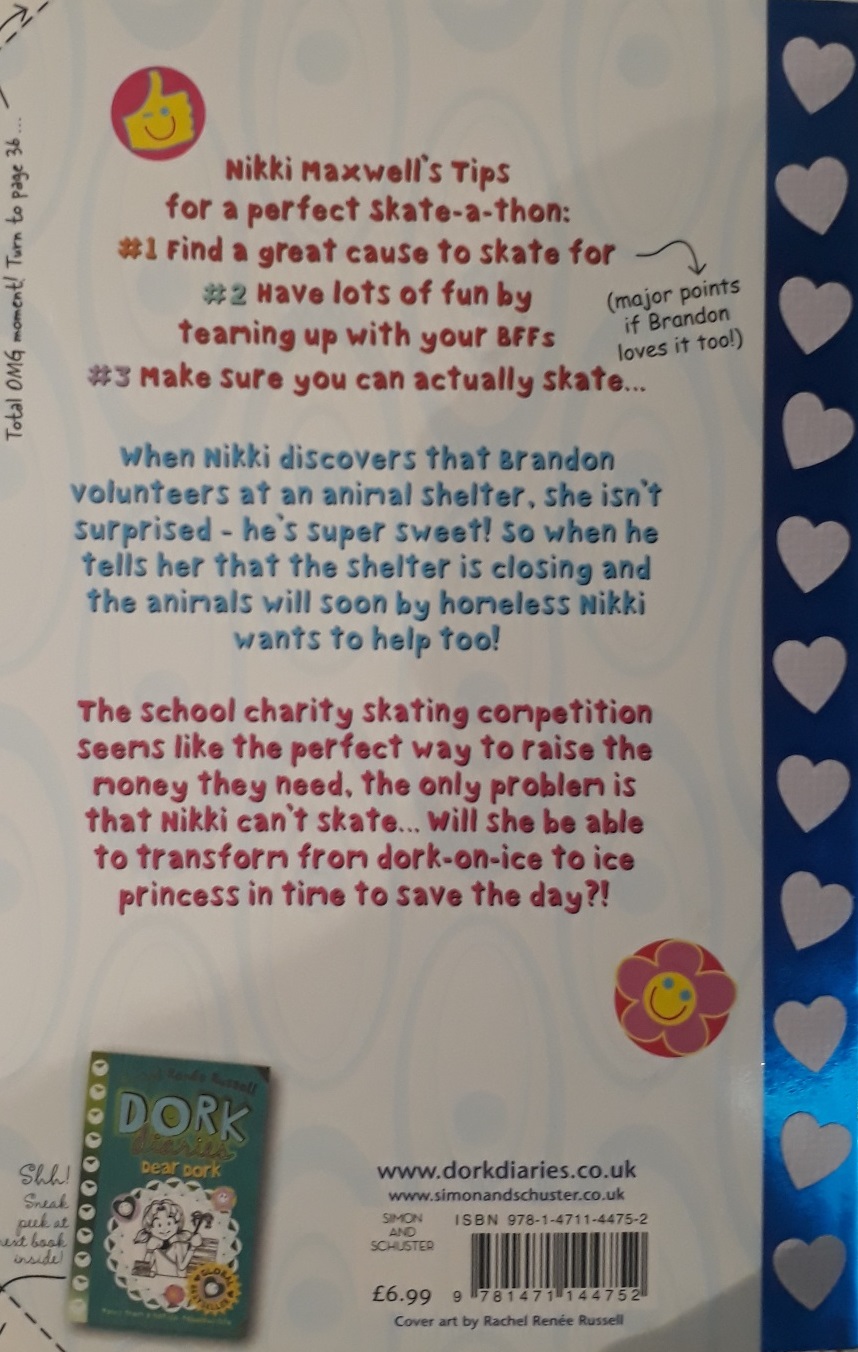 Total OMG moment! Turn to page 36...
Nikki Maxwell's Tips
for a perfect Skate-a-thon:
#1 Find a great cause to skate for
(major points
if Brandon
loves it too!)
#2 Have lots of fun by
teaming up with your BFFs
#3 Make sure you can actually skate...
When Nikki discovers that Brandon
volunteers at an animal shelter, she isn't
surprised - he's super sweet! So when he
tells her that the shelter is closing and
the animals will soon by homeless Nikki
wants to help too!
The school charity skating competition
seems like the perfect way to raise the
money they need, the only problem is
that Nikki can't skate... Will she be able
to transform from dork-on-ice to ice
princess in time to save the day?!
Shh!
Sneak
peek at
next book
inside!
Renée Russell
DORK
diaries
Dear Dork
GLOBAL
BESTSELLER
www.dorkdiaries.co.uk
www.simonandschuster.co.uk
SIMON
AND
SCHUSTER
ISBN 978-1-4711-4475-2
£6.99
9 781471 144752
Cover art by Rachel Renée Russell